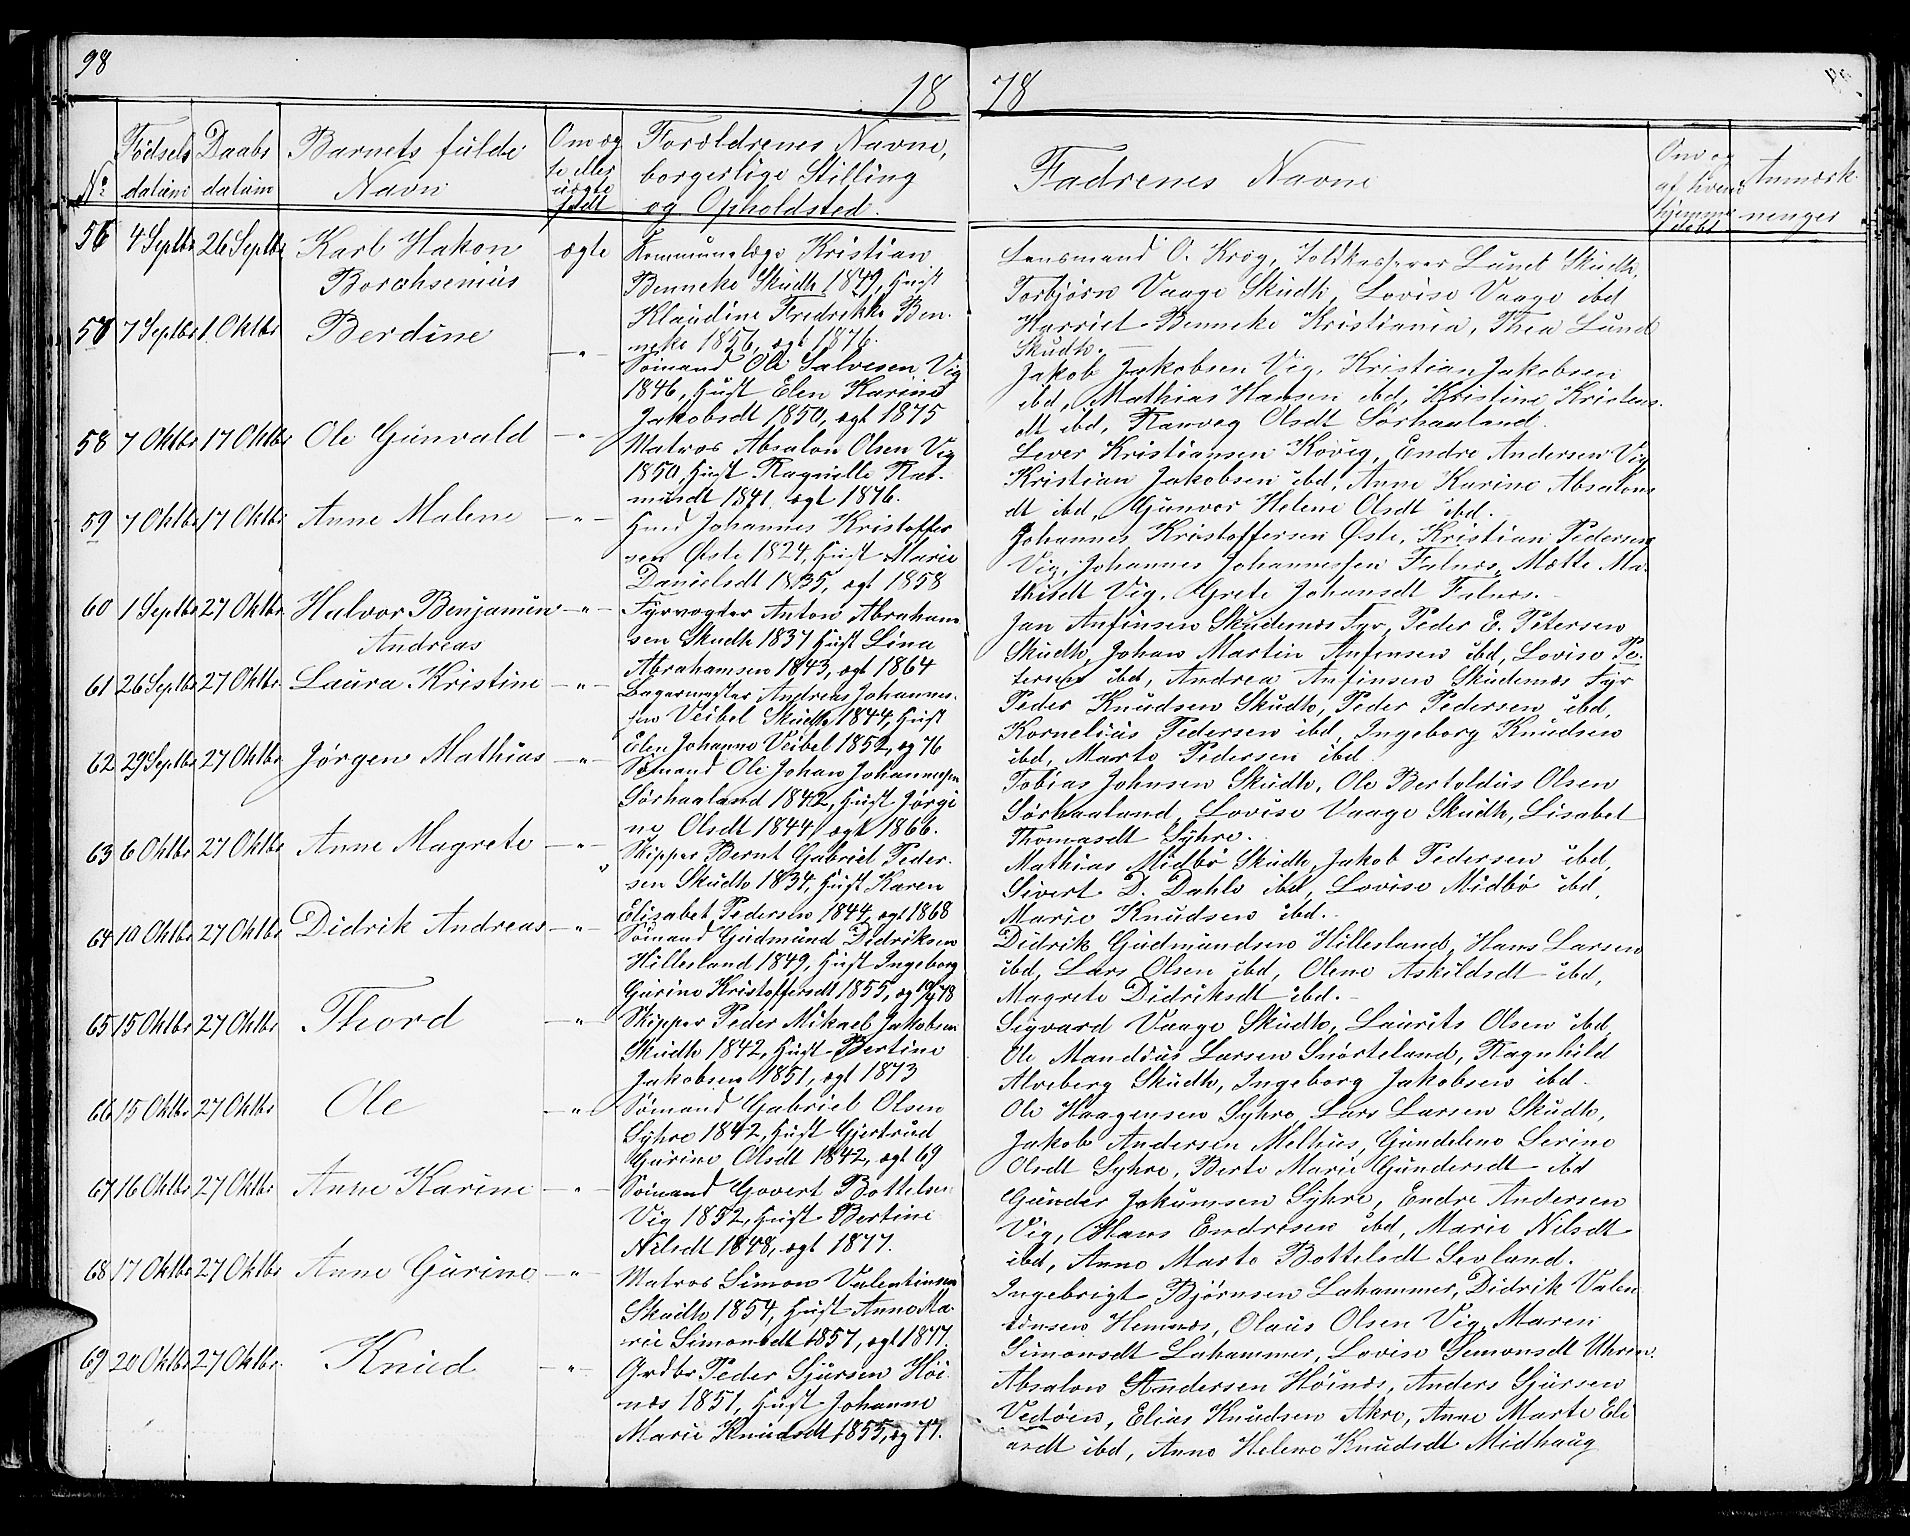 98
18 78
No
Fødsels
datum
Daabs
datum
Barnets fulde
Navn
Om æg
te eller
uægte
født
Forældrenes Navne,
borgerlige Stilling
og Opholdsted.
Fadrenes Navne
Om og
af hvem
hjemme
døbt
Anmærk-
ninger
56 4 Septbr 26 Septbr Karl Hakon
Borchsenius
ægte
Kommunelæge Kristian
Benneke Skudh 1849, Hust
Klaudine Fredrikke Ben-
neke 1856, egt 1876.
Lensmand O. Krog, Toldkasserer Lund Skudh,
Torbjørn Vaage Skudh, Lovise Vaage ibd
Harriet Benneke Kristiania, Thea Lund
Skudh.
57 7 Septbr 1 Oktbr Berdine
—"—
Sømand Ole Salvesen Vig
1846, Hust Elen Karine
Jakobsdt 1850, egt 1875
Jakob Jakobsen Vig, Kristian Jakobsen
ibd, Mathias Hansen ibd, Kristine Kristens-
dt ibd, Ranveg Olsdt Sørhaaland.
58 7 Oktbr 17 Oktbr Ole Gunvald —"—
Matros Absalon Olsen Vig
1850, Hust Ragnille Ras-
musdt 1841 egt 1876.
Lever Kristiansen Kovig, Endre Andersen Vig
Kristian Jakobsen ibd, Anne Karine Absalons
dt ibd, Gunvor Helene Olsdt ibd.
59 7 Oktbr 17 Oktbr Anne Malene —"—
Hmd Johannes Kristoffer
sen Øste 1824, Hust Marie
Danielsdt 1835, egt 1858
Johannes Kristoffersen Øste, Kristian Pedersen
Vig, Johannes Johannessen Falnes, Mette Ma-
thisdt Vig, Grete Johansdt Falnes.
60 1 Septbr 27 Oktbr Halvor Benjamin
Andreas
—"—
Fyrvogter Anton Abraham
sen Skudh 1837 Hust Lina
Abrahamsen 1843, egt 1864
Jan Anfinsen Skudenæs Fyr, Peder E. Petersen
Skudh, Johan Martin Anfinsen ibd, Lovise Pe-
tersen ibd, Andrea Anfinsen Skudenæs Fyr
61 26 Septbr 27 Oktbr Laura Kristine —"—
Bagermester Andreas Johannes-
sen Veibel Skudh 1844, Hust
Elen Johanne Veibel 1852, eg 76
Peder Knudsen Skudh, Peder Pedersen ibd,
Kornelius Pedersen ibd, Ingeborg Knudsen
ibd, Marte Pedersen ibd
62 29 Septbr 27 Oktbr Jørgen Mathias —"—
Sømand Ole Johan Johannessen
Sørhaaland 1842, Hust Jørgi
ne Olsdt 1844, egt 1866.
Tobias Johnsen Skudh, Ole Bertoldus Olsen
Sørhaaland, Lovise Vaage Skudh, Lisabet
Thomasdt Syhre.
63 6 Oktbr 27 Oktbr Anne Magrete —"—
Skipper Bernt Gabriel Peder-
sen Skudh 1834, Hust Karen
Elisabet Pedersen 1844, egt 1868
Mathias Midbø Skudh, Jakob Pedersen ibd,
Sivert D. Dahle ibd, Lovise Midbø ibd,
Marie Knudsen ibd.
64 10 Oktbr 27 Oktbr Didrik Andreas —"—
Sømand Gudmund Didriksen
Hillesland 1849, Hust Ingeborg
Gurine Kristoffersdt 1855, eg 78
Didrik Gudmundsen Hillesland, Hans Larsen
ibd, Lars Olsen ibd, Olene Askildsdt ibd,
Magrete Didriksdt ibd.
65 15 Oktbr 27 Oktbr Thord —"—
Skipper Peder Mikael Jakobsen
Skudh 1842, Hust Bertine
Jakobsen 1851, egt 1873
Sigvard Vaage Skudh, Laurits Olsen ibd,
Ole Mandius Larsen Snørteland, Ragnhild
Alveberg Skudh, Ingeborg Jakobsen ibd.
66 15 Oktbr 27 Oktbr Ole —"—
Sømand Gabriel Olsen
Syhre 1842, Hust Gjertrud
Gurine Olsdt 1842, egt 69
Ole Haagensen Syhre, Lars Larsen Skudh,
Jakob Andersen Melhus, Gundelene Serine
Olsdt Syhre, Berte Marie Gundersdt ibd
67 16 Oktbr 27 Oktbr Anne Karine —"—
Sømand Govert Bottelsen
Vig 1852, Hust Bertine
Nilsdt 1848, egt 1877.
Gunder Jokumsen Syhre, Endre Andersen
Vig, Hans Endresen ibd, Marie Nilsdt
ibd, Anne Marte Bottelsdt Sevland.
68 17 Oktbr 27 Oktbr Anne Gurine —"—
Matros Simon Valentinsen
Skudh 1854, Hust Anne Ma-
rie Simonsdt 1857, egt 1877.
Ingebrigt Bjørnsen Lahammer, Didrik Valen
tinsen Hemnæs, Olaus Olsen Vig, Maren
Simonsdt Lahammer, Lovise Simonsdt
69 20 Oktbr 27 Oktbr Knud —"—
Grdbr Peder Sjursen Høi-
næs 1851, Hust Johanne
Marie Knudsdt 1855, eg 77.
Absalon Andersen Høinæs, Anders Sjursen
Vedøen, Elias Knudsen Akre, Anne Marte Eli
asdt ibd, Anne Helene Knudsdt Midhaug